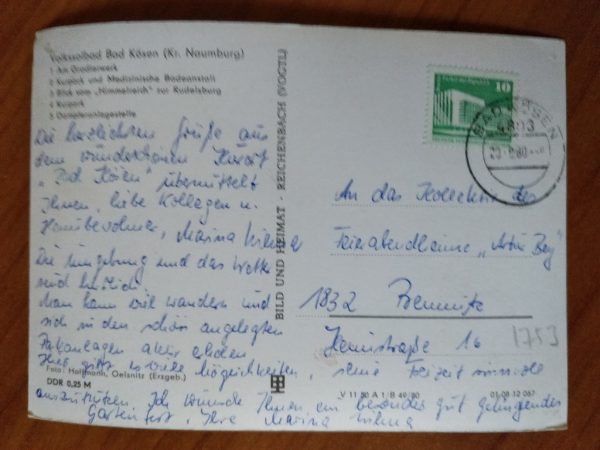 Volkssolbad Bad Kösen (Kr. Naumburg)
1 Am Gradierwerk
2 Kurpark und Medizinische Badeanstalt
3 Blick vom „Himmelreich" zur Rudelsburg
4 Kurpark
5 Dampferanlegestelle
Die herzlichsten Grüße aus
dem wunderbaren Kurort
„Bad Kösen" übermittelt
Ihnen, liebe Kollegen u.
Heimbewohner, Marina
Die Umgebung und das Wetter
sind herrlich.
Man kann viel wandern und
sich in den schön angelegten
Parkanlagen aktiv erholen
Hier gibt es viele Möglichkeiten, seine Freizeit sinnvoll
auszunutzen. Ich wünsche Ihnen ein besonders gut gelingendes
Gartenfest, Ihre Marina
Foto: Hoffmann, Oelsnitz (Erzgeb.)
DDR 0,25 M
BILD UND HEIMAT · REICHENBACH (VOGTL)
10
BAD KÖSEN
4803
An das Kollektiv des
Feierabendheims „Artur Berg"
1832 Premnitz
Heinestraße 16
1753
V 11 50 A 1/B 49/80
01 08 12 067